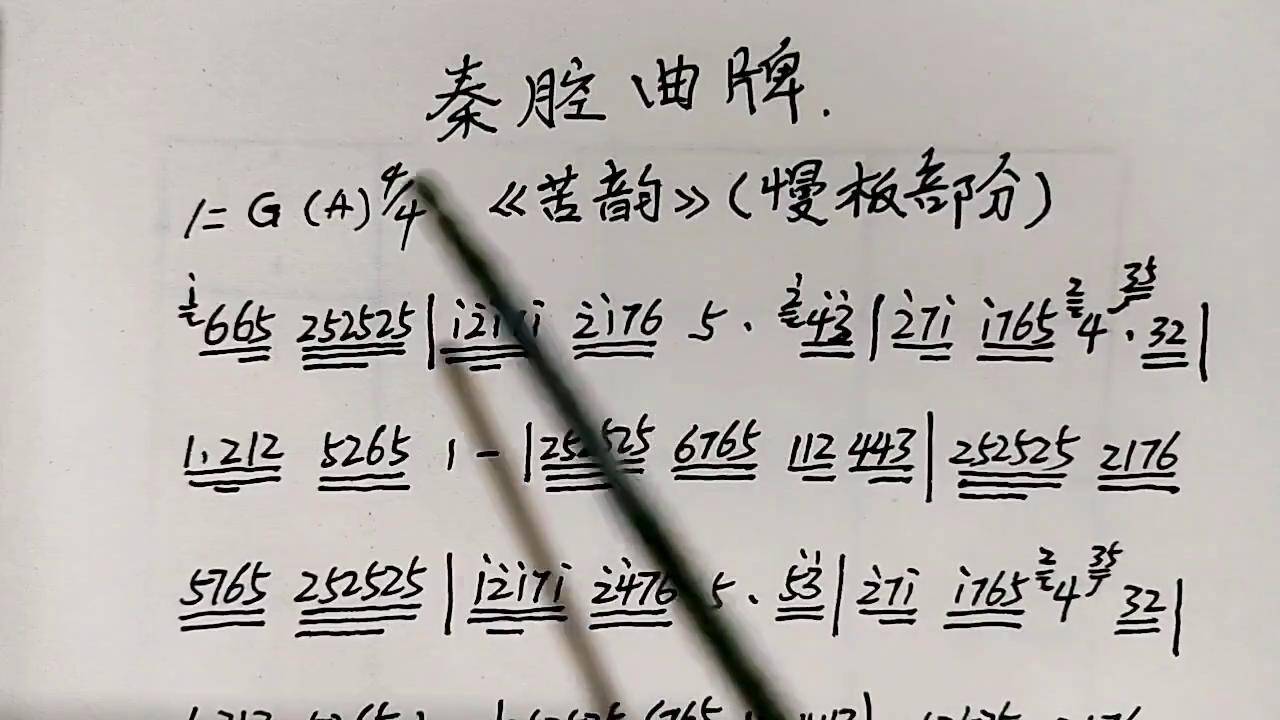 秦腔曲牌.
1=G(A)4/4 《苦韵》(慢板部分)
i 665 252525 | i2i7i 2i76 5· 2 43 | 27i i765 2 4·35 32 |
1.212 5265 1 - | 252525 6765 112 443 | 252525 2176
5765 252525 | i2i7i 2476 5· 53 | 27i i765 2 4 35 32 |